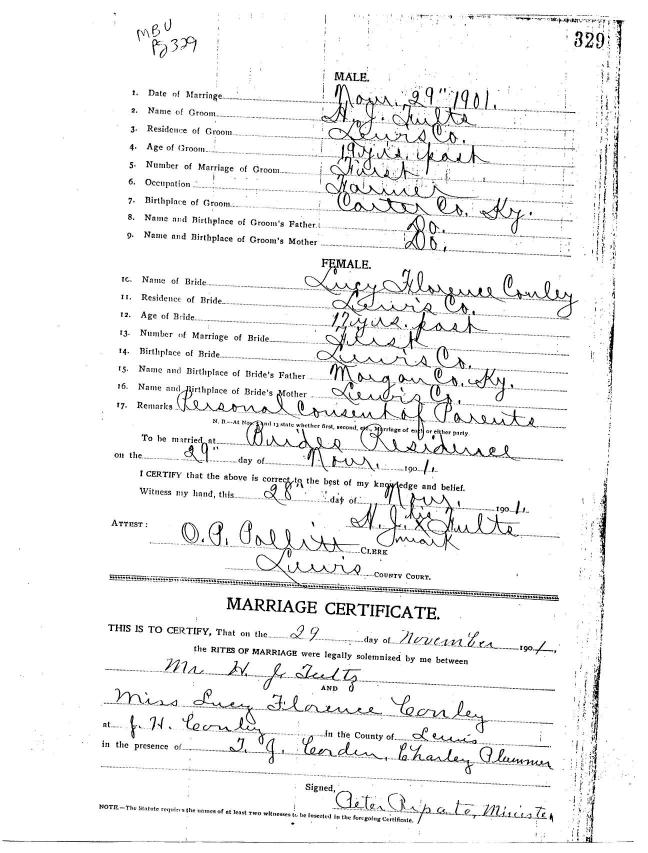 MBU
Pg 329
329
MALE.
1. Date of Marriage Nov. 29" 1901.
2. Name of Groom H. J. Fultz
3. Residence of Groom Lewis Co.
4. Age of Groom 19 yrs. past
5. Number of Marriage of Groom First
6. Occupation Farmer
7. Birthplace of Groom Carter Co. Ky.
8. Name and Birthplace of Groom's Father Do.
9. Name and Birthplace of Groom's Mother Do.
FEMALE.
10. Name of Bride Lucy Florence Conley
11. Residence of Bride Lewis Co.
12. Age of Bride 17 yrs. past
13. Number of Marriage of Bride First
14. Birthplace of Bride Lewis Co.
15. Name and Birthplace of Bride's Father Morgan Co. Ky.
16. Name and Birthplace of Bride's Mother Lewis Co.
17. Remarks Personal Consent of Parents
N. B.—At Nos. 5 and 13 state whether first, second, etc., Marriage of each or either party.
To be married at Brides Residence
on the 29" day of Nov. 1901.
I CERTIFY that the above is correct to the best of my knowledge and belief.
Witness my hand, this 28" day of Nov. 1901.
H. J. his x mark Fultz
ATTEST: O. P. Pollitt CLERK
Lewis COUNTY COURT.
MARRIAGE CERTIFICATE.
THIS IS TO CERTIFY, That on the 29 day of November 1901,
the RITES OF MARRIAGE were legally solemnized by me between
Mr H. J. Fultz
AND
Miss Lucy Florence Conley
at J. H. Conley in the County of Lewis
in the presence of T. J. Cordin, Charley Plummer
Signed,
Peter Minister
NOTE.—The Statute requires the names of at least two witnesses to be inserted in the foregoing Certificate.